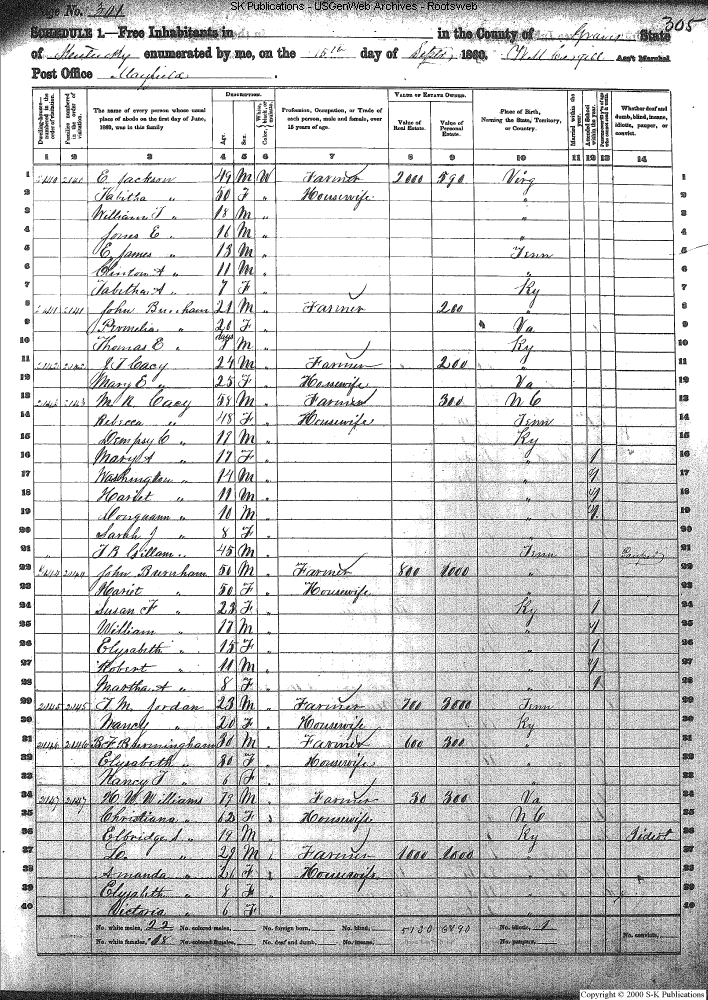 SK Publications - USGenWeb Archives - Rootsweb
Page No. 311
305
SCHEDULE 1.—Free Inhabitants in in the County of Graves State
of Kentucky enumerated by me, on the 15th day of Sept, 1860. Ass't Marshal
Post Office Mayfield
Dwelling-houses—numbered in the order of visitation. Families numbered in the order of visitation. The name of every person whose usual place of abode on the first day of June, 1860, was in this family DESCRIPTION. Age. Sex. White, black, or mulatto. Color Profession, Occupation, or Trade of each person, male and female, over 15 years of age. VALUE OF ESTATE OWNED. Value of Real Estate. Value of Personal Estate. Place of Birth, Naming the State, Territory, or Country. Married within the year. Attended School within the year. Whether deaf and dumb, blind, insane, idiotic, pauper, or convict.
1 2 3 4 5 6 7 8 9 10 11 12 13 14
1 2140 2140 E. Jackson 49 M W Farmer 2000 590 Virg 1
2 Tabitha " 50 F " Housewife " 2
3 William T " 18 M " " 3
4 Jones E. " 16 M " " 4
5 E. James " 13 M " Tenn 5
6 Clinton A " 11 M " " 6
7 Tabitha A. " 7 F " Ky 7
8 2141 2141 John Burnham 21 M " Farmer 200 " 8
9 Permelia " 20 F " Va 9
10 Thomas E " days M " Ky 10
11 2142 2142 J T Cacy 24 M " Farmer 200 " 11
12 Mary E " 25 F " Housewife Va 12
13 2143 2143 M R Cacy 58 M " Farmer 300 N C 13
14 Rebecca " 48 F " Housewife Tenn 14
15 Dempsy C " 19 M " Ky 15
16 Mary A " 17 F " " 1 16
17 Washington " 14 M " " 1 17
18 Hariet " 11 M " " 1 18
19 " 10 M " " 1 19
20 Sarah J " 8 F " " 20
21 " J B Gillam " 45 M " Tenn Pauper 21
22 2144 2144 John Burnham 50 M " Farmer 800 1000 " 22
23 Hariet " 50 F " Housewife " 23
24 Susan F " 23 F " Ky 1 24
25 William " 17 M " " 1 25
26 Elysabeth " 15 F " " 1 26
27 Robert " 11 M " " 1 27
28 Martha A " 8 F " " 1 28
29 2145 2145 J. M. Jordan 23 M " Farmer 700 3000 Tenn 29
30 Nancy " 20 F " Housewife Ky 30
31 2146 2146 B F Burmingham 30 M " Farmer 600 300 " 31
32 Elysabeth " 30 F " Housewife " 32
33 Nancy J " 6 F " " 33
34 2147 2147 H. W. Williams 79 M " Farmer 30 300 Va 34
35 Christiana " 62 F " Housewife N C 35
36 Elbridge S " 19 M " Ky Idiot 36
37 Lo. " 29 M " Farmer 1000 1000 " 37
38 Amanda " 26 F " Housewife " 38
39 Elysabeth " 8 F " " 39
40 Victoria " 6 F " " 40
No. white males, 22 No. colored males, No. foreign born, No. blind, 5130 6490 No. idiotic, 1 No. convicts,
No. white females, 18 No. colored females, No. deaf and dumb, No. insane, No. paupers,
Copyright © 2000 S-K Publications